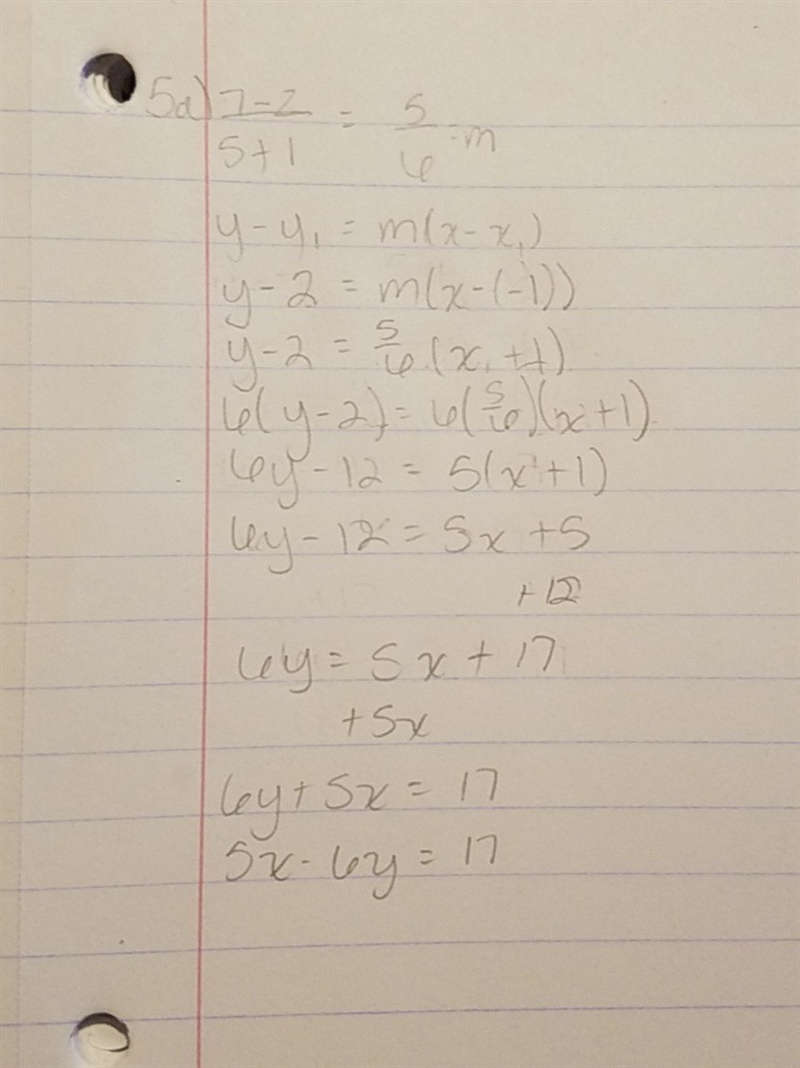 5a) 7-2/5+1 = 5/6 = m
y - y₁ = m(x - x₁)
y - 2 = m(x - (-1))
y - 2 = 5/6 (x + 1)
6(y - 2) = 6(5/6)(x + 1)
6y - 12 = 5(x + 1)
6y - 12 = 5x + 5
+ 12
6y = 5x + 17
+ 5x
6y + 5x = 17
5x - 6y = 17